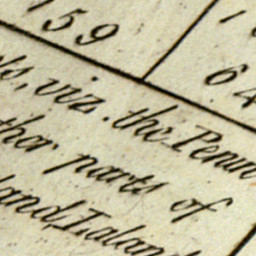 159
64
viz. the Penin
ther parts of
land, Ialand